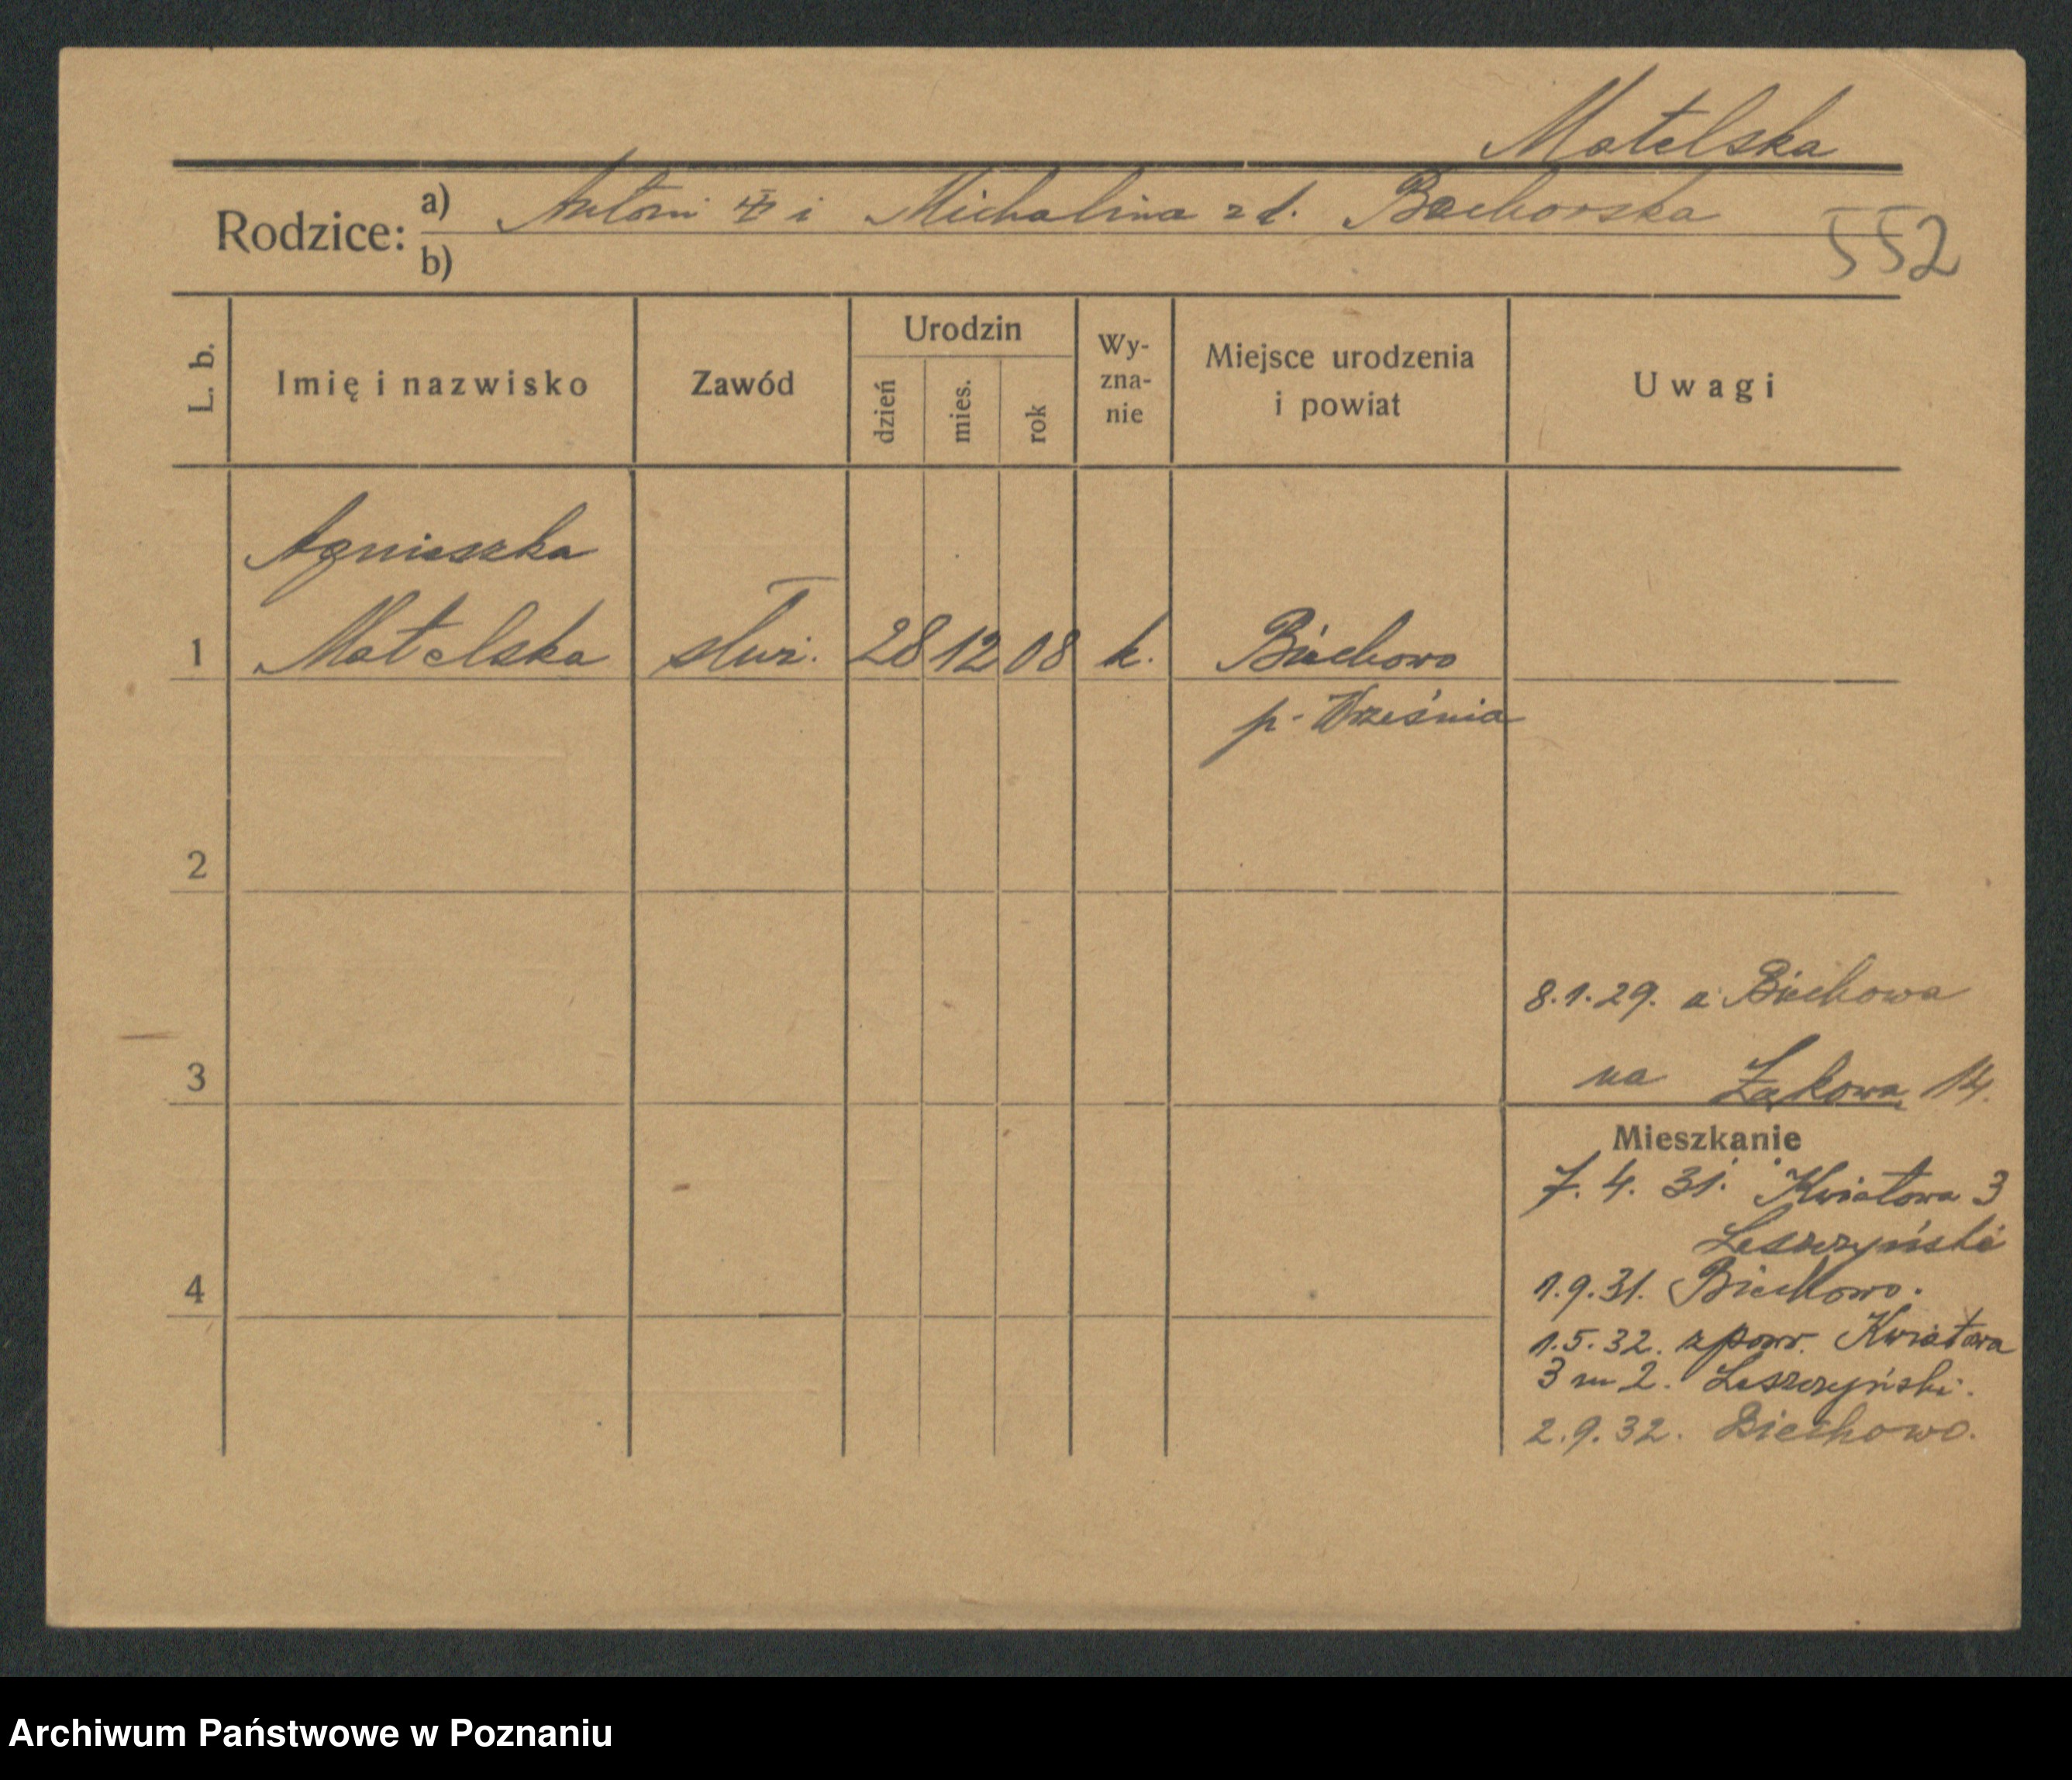 Matelska
Rodzice: a) Antoni i Michalina z d. Bochorska
b)
552
L. b.
Imię i nazwisko
Zawód
Urodzin
dzień
mies.
rok
Wy-
zna-
nie
Miejsce urodzenia
i powiat
Uwagi
Agnieszka
1 Matelska służ. 28 12 08 k. Biechowo
p. Września
2
8.1.29. z Biechowa
3 na Łąkowa 14.
Mieszkanie
7. 4. 31. Kwiatowa 3
Leszczyński
4 1.9.31. Biechowo.
1.5.32. zpow. Kwiatowa
3 m 2. Leszczyński.
2.9.32. Biechowo.
Archiwum Państwowe w Poznaniu